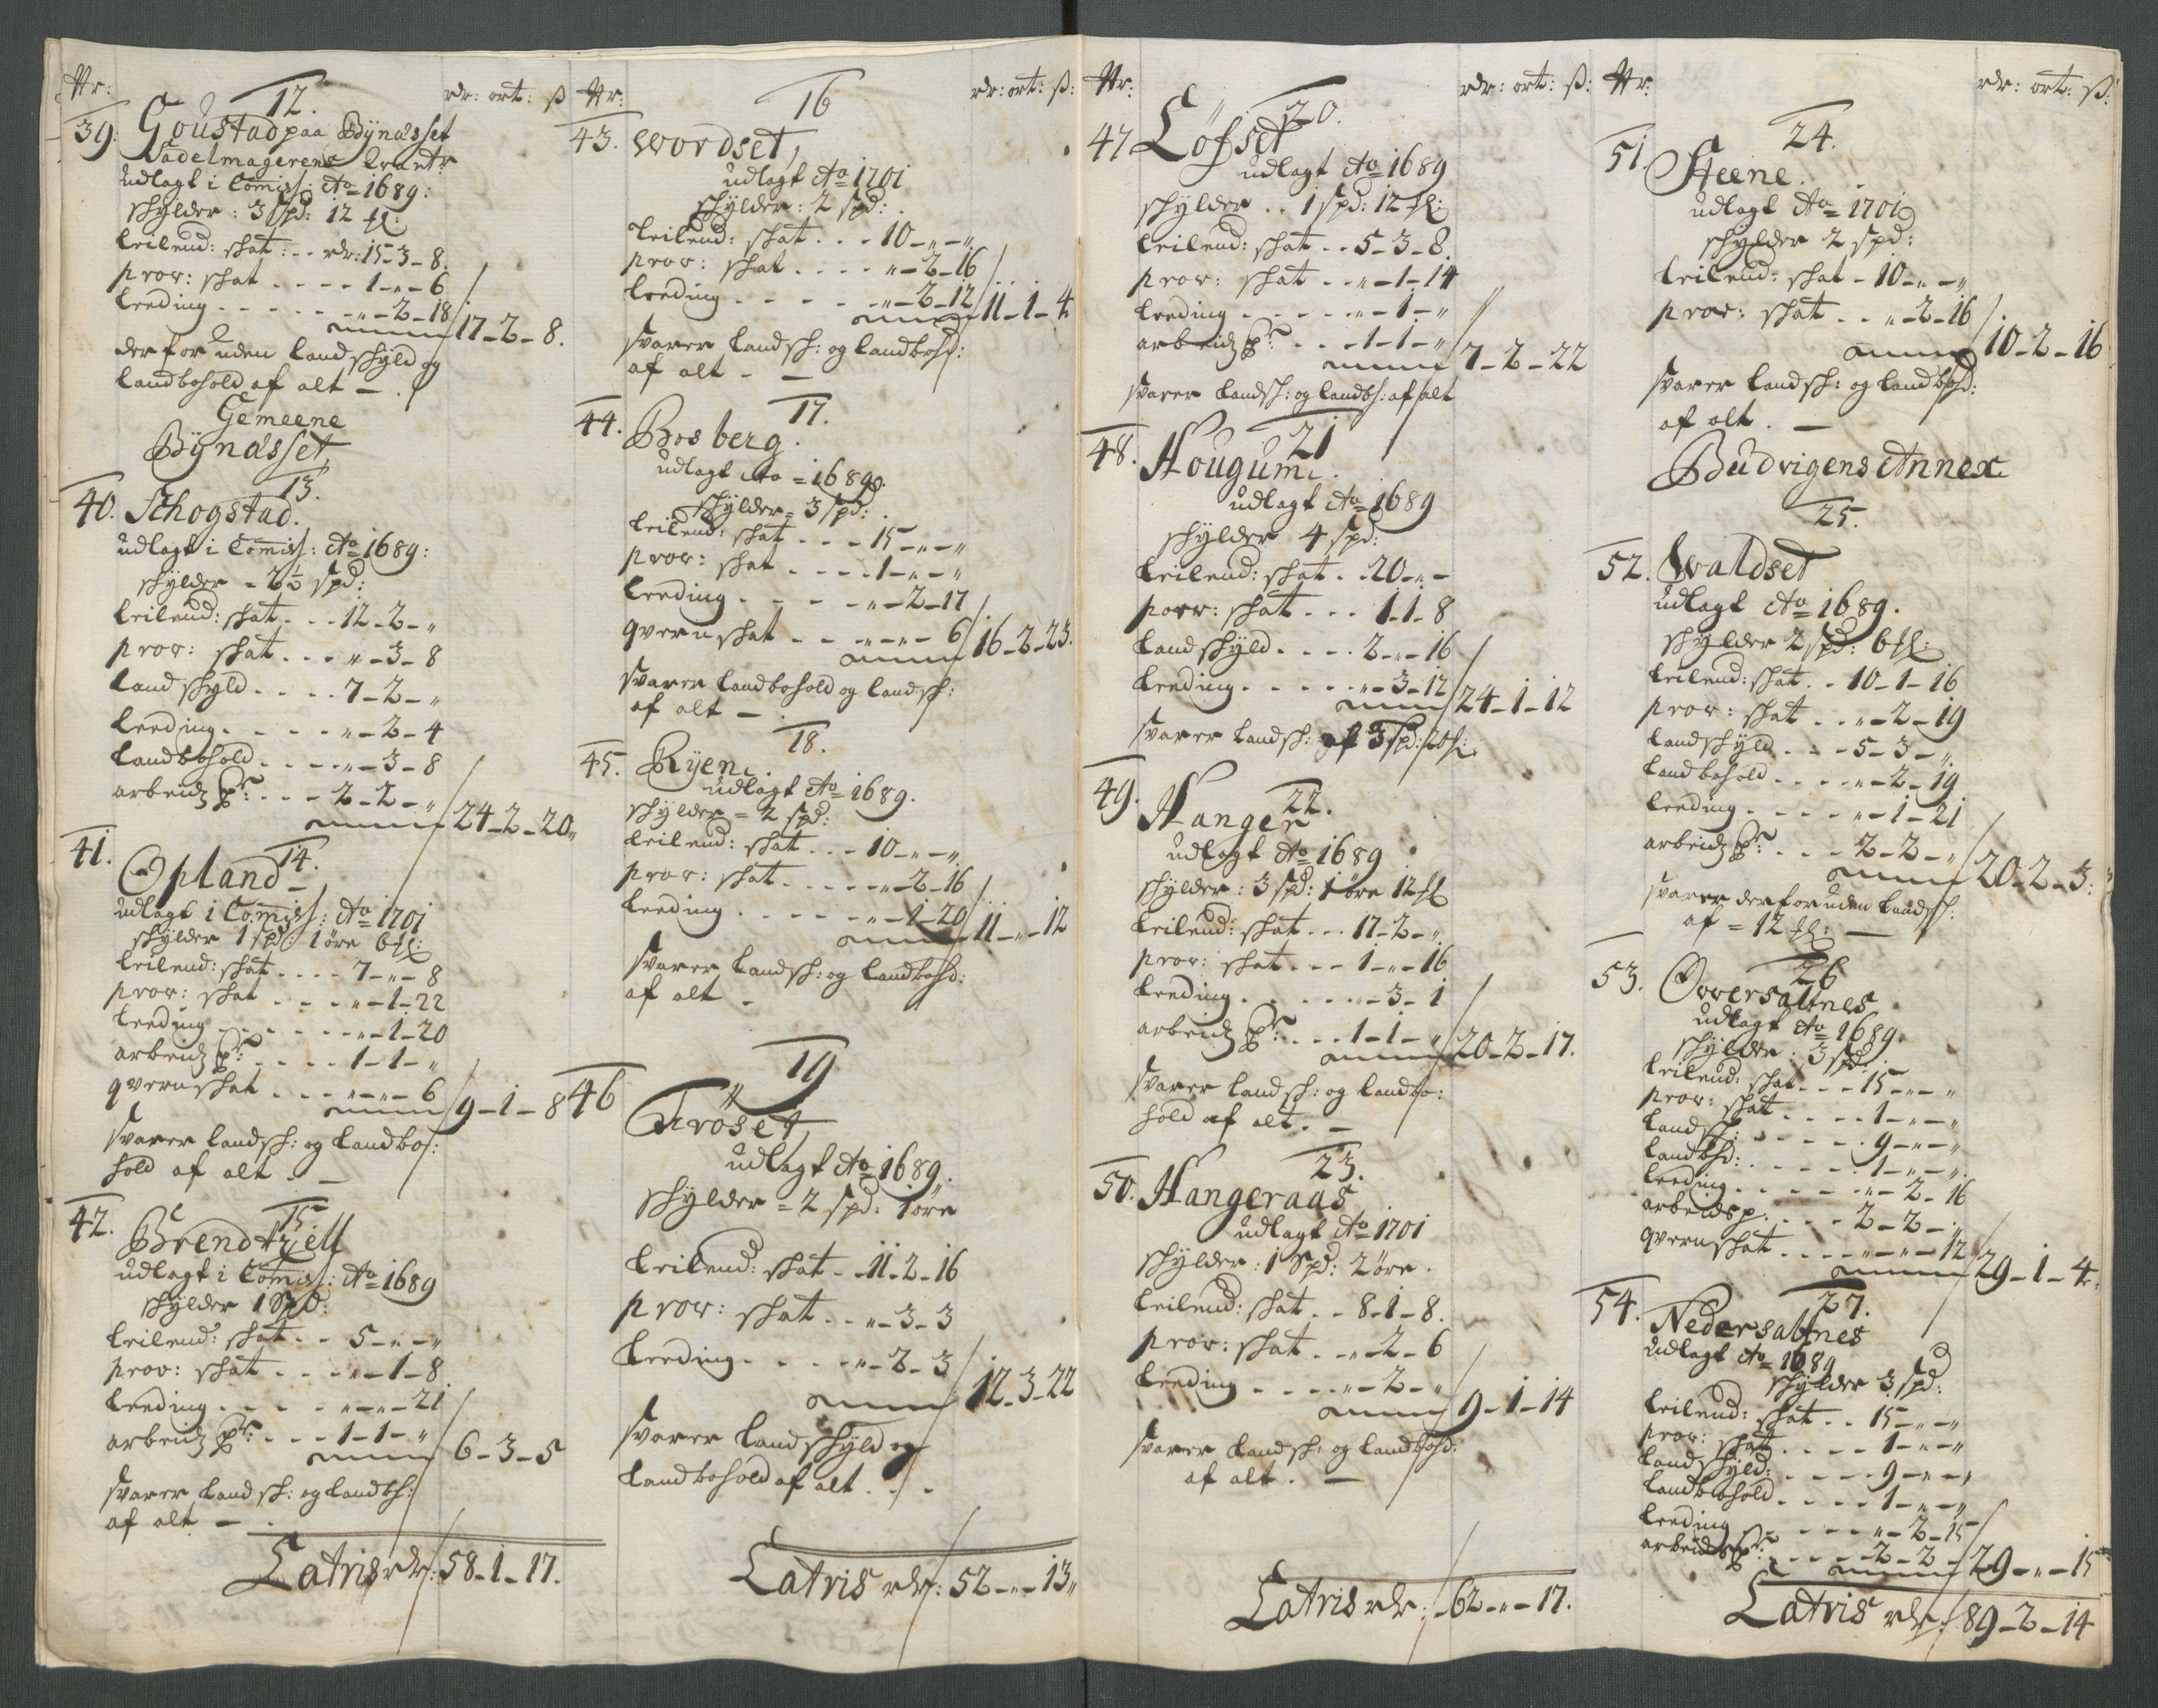 Nr:
rdr: ort: ß
12.
39. Goustad paa Bÿnæsset
Sadelmagerens Qvartr
udlagt i Comiss: Ao 1689:
skÿlder: 3 spd: 12 sl:
Leilend: skat: . . rdr: 15-3-8.
prov: skat . . . . 1-"-6
Leeding . . . . . "-2-18
17-2-8.
derfor uden Landskÿld og
Landbohold af alt — .
Gemeene
Bÿnæsset
13.
40. Schogstad.
udlagt i Comiss: Ao 1689:
skÿlder = 2½ spd:
Leilend: skat . . . 12-2-"
prov: skat . . . "-3-8
Landskÿld . . . . 7-2-"
Leeding . . . . . "-2-4
Landbohold . . . . "-3-8
arbeidz p: . . . 2-2-"
24-2-20"
14.
41. Opland
udlagt i Comiss: Ao 1701
skÿlder 1 spd: 1 öre 6 sl:
Leilend: skat . . . . 7-"-8
prov: skat . . . . "-1-22
Leeding . . . . . "-1-20
arbeidz p: . . . . 1-1-"
qvernskat . . . "-"-6
9-1-8
svarer Landsk: og Landbo:
hold af alt . —
15
42. Brendtzell
udlagt i Comiss: Ao 1689
skÿlder 1 Spd:
Leilend: skat . . 5-"-"
prov: skat . . . "-1-8
Leeding . . . . "-"-21
arbeidz p: . . . 1-1-"
6-3-5
svarer Landsk: og Landbh:
af alt — .
Latris rdr: 58-1-17.
Nr:
rdr: ort: ß:
16
43. Wordset,
udlagt Ao 1701
skÿlder: 2 spd: .
Leilend: skat . . . 10-"-"
prov: skat . . . . "-2-16
Leeding . . . . . "-2-12
11-1-4
svarer Landsk: og Landbohd:
af alt - —
17.
44. Bosberg.
udlagt Ao = 1689.
skÿlder = 3 spd: .
Leilend: skat . . . 15-"-"
prov: skat . . . . 1-"-"
Leeding . . . . "-2-17
qvernskat . . . "-"-6
16-2-23.
svarer Landbohold og Landsk:
af alt — .
18.
45. Rÿen.
udlagt Ao 1689.
skÿlder = 2 spd:
Leilend: skat . . . 10-"-"
prov: skat . . . . . "-2-16
Leeding . . . . . "-1-20
11-"-12
svarer Landsk: og Landbohd:
af alt -
19
46 Fröset,
udlagt Ao 1689.
skÿlder = 2 spd: 1 öre
Leilend: skat . . 11-2-16
prov: skat . . "-3-3
Leeding . . . . "-2-3
12-3-22
svarer Landskÿld og
Landbohold af alt . . .
Latris rdr: 52-"-13"
Nr:
rdr: ort: ß:
20.
47 Löfset
udlagt Ao 1689
skÿlder . . 1 spd: 12 sl:
Leilend: skat . . 5-3-8.
prov: skat . . "-1-14
Leeding . . . . . "-1-"
arbeidz p: . . . 1-1-"
7-2-22
svarer Landsk: og Landbh: af alt
21
48. Hougum.
udlagt Ao 1689
skÿlder 4 spd:
Leilend: skat . . 20-"-
porv: skat . . . 1-1-8
Landskÿld . . . . 2-"-16
Leeding . . . . . "-3-12
24-1-12
svarer Landsk: af 3 spd:
22.
49. Hanger
udlagt Ao 1689
skÿlder: 3 spd: 1 öre 12 sl
Leilend: skat . . . 17-2-"
prov: skat . . . 1-"-16
Leeding . . . . . "-3-1
arbeidz p: . . . 1-1-"
20-2-17.
svarer Landsk: og Landbo:
hold af alt . —
23.
50. Hangeraas
udlagt Ao 1701
skÿlder: 1 Spd: 2 öre .
Leilend: skat . . 8-1-8.
prov: skat . . "-2-6
Leeding . . . . "-2-"
9-1-14
svarer Landsk: og Landbohd:
af alt . —
Latris rdr: 62-"-17.
Nr:
rdr: ort: ß:
24.
51. Steene.
udlagt Ao 1701
skÿlder 2 spd:
Leilend: skat - 10-"-"
prov: skat . . "-2-16
10-2-16
svarer Landsk: og Landbohd:
af alt . —
Budvigens Annex
25.
52. Waldset
udlagt Ao 1689.
skÿlder 2 spd: 6 sl:
Leilend: skat . . 10-1-16
prov: skat . . "-2-19
Landskÿld . . . 5-3-".
Landbohold . . . . "-2-19.
Leeding . . . . . "-1-21
arbeidz p: . . . 2-2-"
20-2-3:
svarer derfor uden Landsk:
af = 12 sl: —
26
53. Ovversaltnes
udlagt Ao 1689.
skÿlder: 3 spd: .
Leilend: skat . . . 15-"-"
prov: skat . . . . 1-"-"
Landsk: . . . . . 9-"-"
Landbhd: . . . . . 1-"-"
Leeding . . . . . "-2-16
arbeidsp: . . . 2-2-"
qvernskat . . . . "-"-12
29-1-4.
27.
54. Nedersaltnes
udlagt Ao 1689
skÿlder 3 spd:
Leilend: skat . . 15-"-"
prov: skat . . . . 1-"-"
Landskÿld: . . . . 9-"-"
Landbohold . . . . 1-"-"
Leeding . . . . "-2-15
arbeidzp: . . . . 2-2-
29-"-15
Latris rdr: 89-2-14